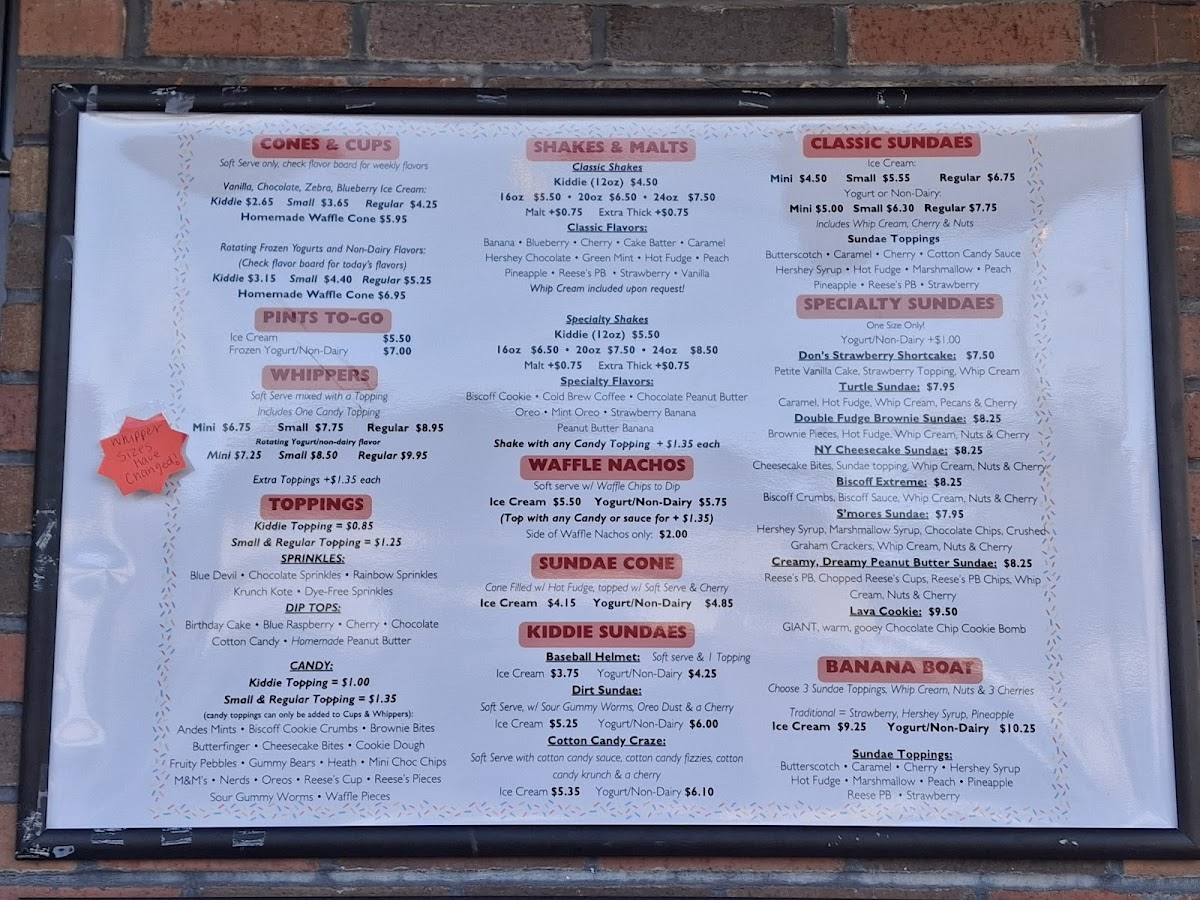 CONES & CUPS
Soft Serve only, check flavor board for weekly flavors
Vanilla, Chocolate, Zebra, Blueberry Ice Cream:
Kiddie $2.65 Small $3.65 Regular $4.25
Homemade Waffle Cone $5.95
Rotating Frozen Yogurts and Non-Dairy Flavors:
(Check flavor board for today's flavors)
Kiddie $3.15 Small $4.40 Regular $5.25
Homemade Waffle Cone $6.95
PINTS TO-GO
Ice Cream $5.50
Frozen Yogurt/Non-Dairy $7.00
WHIPPERS
Soft Serve mixed with a Topping
Includes One Candy Topping
Mini $6.75 Small $7.75 Regular $8.95
Rotating Yogurt/non-dairy flavor
Mini $7.25 Small $8.50 Regular $9.95
Extra Toppings +$1.35 each
Whipper
Sizes
Have
Changed!
TOPPINGS
Kiddie Topping = $0.85
Small & Regular Topping = $1.25
SPRINKLES:
Blue Devil • Chocolate Sprinkles • Rainbow Sprinkles
Krunch Kote • Dye-Free Sprinkles
DIP TOPS:
Birthday Cake • Blue Raspberry • Cherry • Chocolate
Cotton Candy • Homemade Peanut Butter
CANDY:
Kiddie Topping = $1.00
Small & Regular Topping = $1.35
(candy toppings can only be added to Cups & Whippers):
Andes Mints • Biscoff Cookie Crumbs • Brownie Bites
Butterfinger • Cheesecake Bites • Cookie Dough
Fruity Pebbles • Gummy Bears • Heath • Mini Choc Chips
M&M's • Nerds • Oreos • Reese's Cup • Reese's Pieces
Sour Gummy Worms • Waffle Pieces
SHAKES & MALTS
Classic Shakes
Kiddie (12oz) $4.50
16oz $5.50 • 20oz $6.50 • 24oz $7.50
Malt +$0.75 Extra Thick +$0.75
Classic Flavors:
Banana • Blueberry • Cherry • Cake Batter • Caramel
Hershey Chocolate • Green Mint • Hot Fudge • Peach
Pineapple • Reese's PB • Strawberry • Vanilla
Whip Cream included upon request!
Specialty Shakes
Kiddie (12oz) $5.50
16oz $6.50 • 20oz $7.50 • 24oz $8.50
Malt +$0.75 Extra Thick +$0.75
Specialty Flavors:
Biscoff Cookie • Cold Brew Coffee • Chocolate Peanut Butter
Oreo • Mint Oreo • Strawberry Banana
Peanut Butter Banana
Shake with any Candy Topping + $1.35 each
WAFFLE NACHOS
Soft serve w/ Waffle Chips to Dip
Ice Cream $5.50 Yogurt/Non-Dairy $5.75
(Top with any Candy or sauce for + $1.35)
Side of Waffle Nachos only: $2.00
SUNDAE CONE
Cone Filled w/ Hot Fudge, topped w/ Soft Serve & Cherry
Ice Cream $4.15 Yogurt/Non-Dairy $4.85
KIDDIE SUNDAES
Baseball Helmet: Soft serve & 1 Topping
Ice Cream $3.75 Yogurt/Non-Dairy $4.25
Dirt Sundae:
Soft Serve, w/ Sour Gummy Worms, Oreo Dust & a Cherry
Ice Cream $5.25 Yogurt/Non-Dairy $6.00
Cotton Candy Craze:
Soft Serve with cotton candy sauce, cotton candy fizzies, cotton
candy krunch & a cherry
Ice Cream $5.35 Yogurt/Non-Dairy $6.10
CLASSIC SUNDAES
Ice Cream:
Mini $4.50 Small $5.55 Regular $6.75
Yogurt or Non-Dairy:
Mini $5.00 Small $6.30 Regular $7.75
Includes Whip Cream, Cherry & Nuts
Sundae Toppings
Butterscotch • Caramel • Cherry • Cotton Candy Sauce
Hershey Syrup • Hot Fudge • Marshmallow • Peach
Pineapple • Reese's PB • Strawberry
SPECIALTY SUNDAES
One Size Only!
Yogurt/Non-Dairy +$1.00
Don's Strawberry Shortcake: $7.50
Petite Vanilla Cake, Strawberry Topping, Whip Cream
Turtle Sundae: $7.95
Caramel, Hot Fudge, Whip Cream, Pecans & Cherry
Double Fudge Brownie Sundae: $8.25
Brownie Pieces, Hot Fudge, Whip Cream, Nuts & Cherry
NY Cheesecake Sundae: $8.25
Cheesecake Bites, Sundae topping, Whip Cream, Nuts & Cherry
Biscoff Extreme: $8.25
Biscoff Crumbs, Biscoff Sauce, Whip Cream, Nuts & Cherry
S'mores Sundae: $7.95
Hershey Syrup, Marshmallow Syrup, Chocolate Chips, Crushed
Graham Crackers, Whip Cream, Nuts & Cherry
Creamy, Dreamy Peanut Butter Sundae: $8.25
Reese's PB, Chopped Reese's Cups, Reese's PB Chips, Whip
Cream, Nuts & Cherry
Lava Cookie: $9.50
GIANT, warm, gooey Chocolate Chip Cookie Bomb
BANANA BOAT
Choose 3 Sundae Toppings, Whip Cream, Nuts & 3 Cherries
Traditional = Strawberry, Hershey Syrup, Pineapple
Ice Cream $9.25 Yogurt/Non-Dairy $10.25
Sundae Toppings:
Butterscotch • Caramel • Cherry • Hershey Syrup
Hot Fudge • Marshmallow • Peach • Pineapple
Reese PB • Strawberry